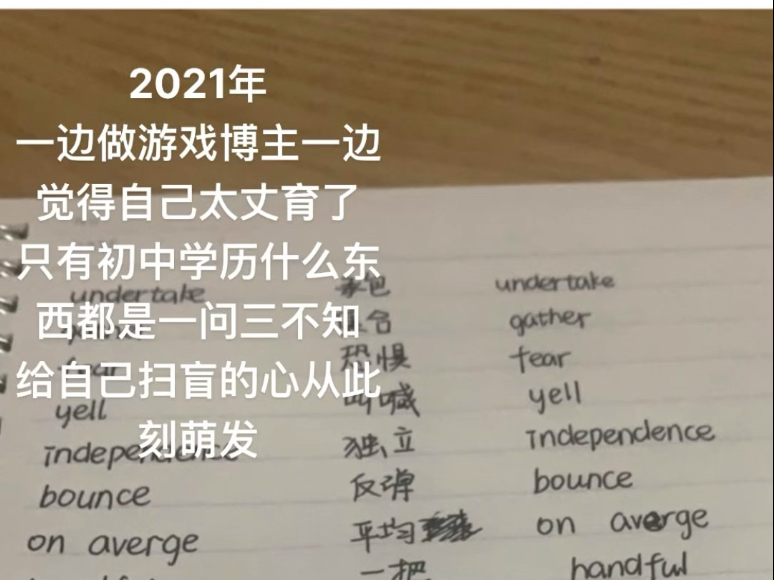 2021年
一边做游戏博主一边
觉得自己太丈育了
只有初中学历什么东
西都是一问三不知
给自己扫盲的心从此
刻萌发
undertake 承包 undertake
合 gather
fear 恐惧 fear
yell 叫喊 yell
independence 独立 independence
bounce 反弹 bounce
on averge 平均 on averge
handful 一把 handful